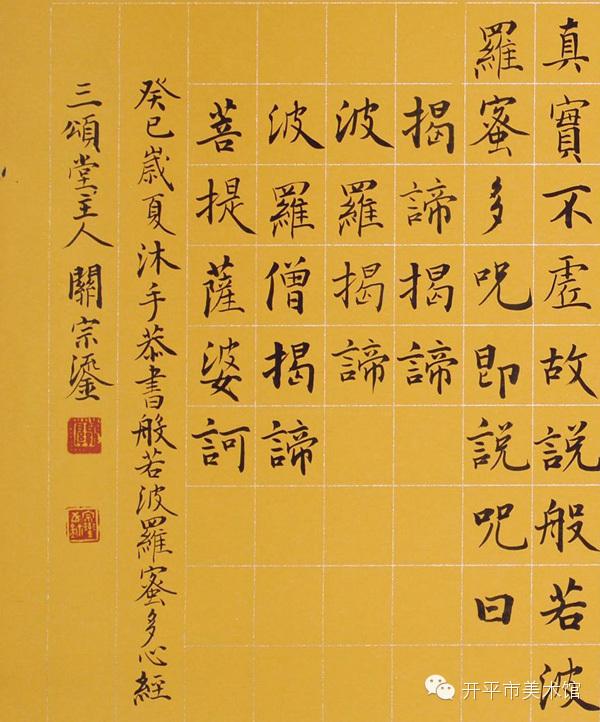 真實不虛故説般若波
羅蜜多咒即説咒曰
揭諦揭諦
波羅揭諦
波羅僧揭諦
菩提薩婆訶
癸巳歲夏沐手恭書般若波羅蜜多心經
三頌堂主人關宗鎏
开平市美术馆